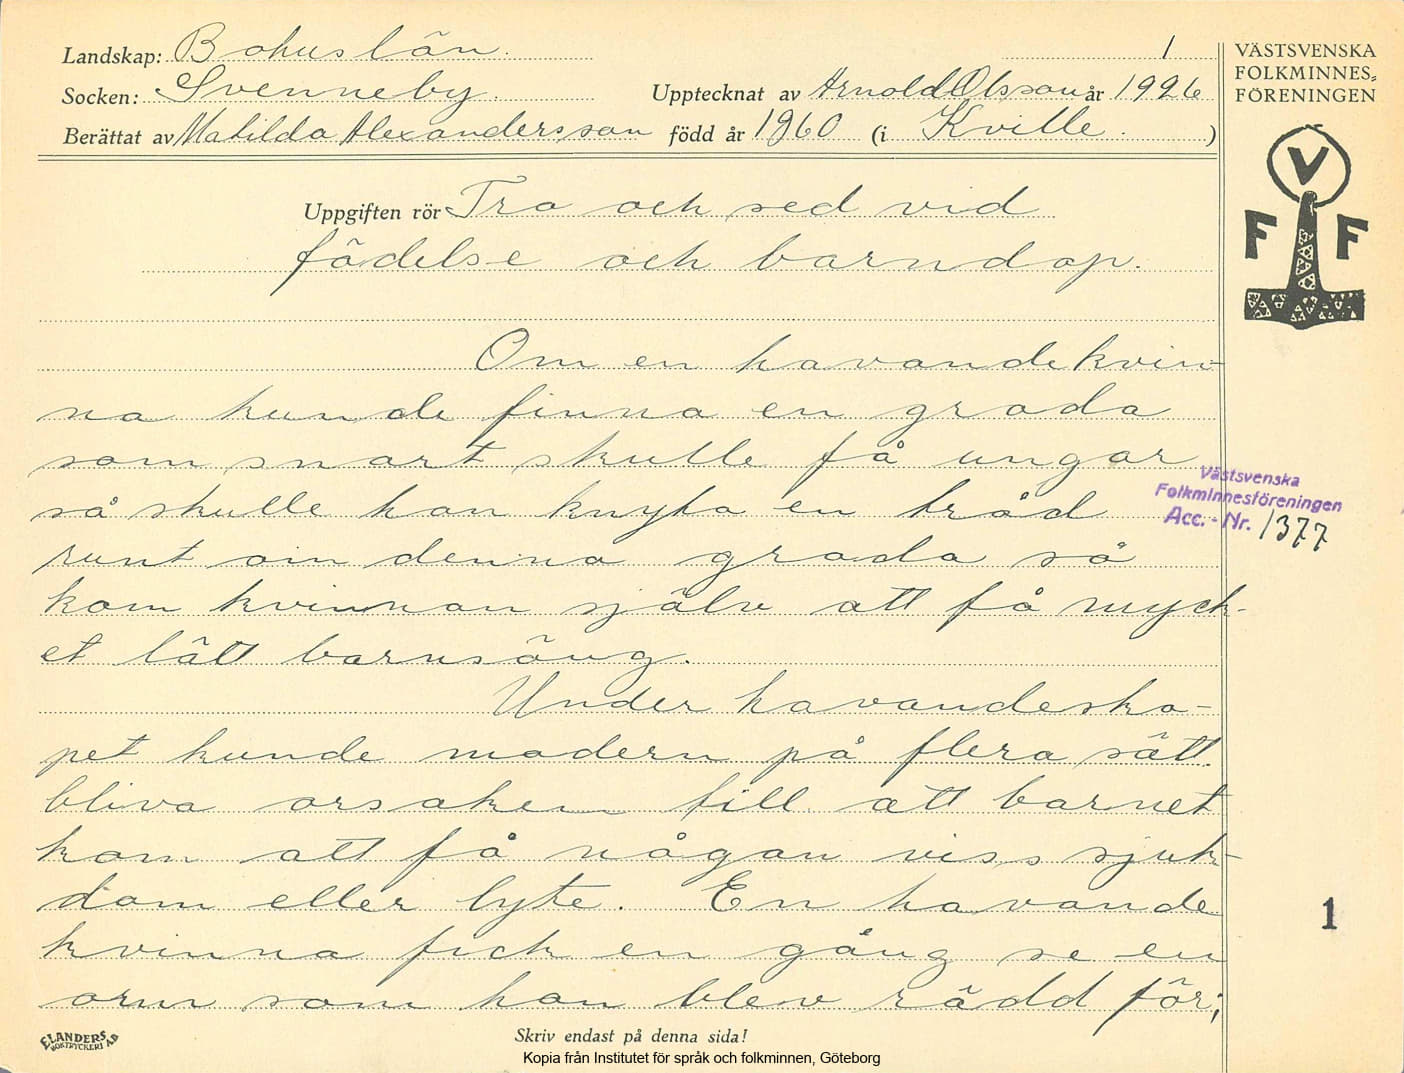 Landskap: Bohuslän. 1
Socken: Svenneby. Upptecknat av Arnold Olsson år 1926
Berättat av Matilda Alexandersson född år 1860 (i Kville. )
Uppgiften rör Tro och sed vid
födelse och barndop.
Om en havande kvin-
na kunde finna en groda
som snart skulle få ungar
så skulle hon knyta en tråd
runt om denna groda så
kom kvinnan själv att få myck-
et lätt barnsäng.
Under havandeska-
pet kunde modern på flera sätt
bliva orsaken till att barnet
kom att få någon viss sjuk-
dom eller lyte. En havande
kvinna fick en gång se en
orm som hon blev rädd för,
Skriv endast på denna sida!
ELANDERS BOKTRYCKERI AB
VÄSTSVENSKA
FOLKMINNES=
FÖRENINGEN
V
F F
Västsvenska
Folkminnesföreningen
Acc. - Nr. 1377
1
Kopia från Institutet för språk och folkminnen, Göteborg